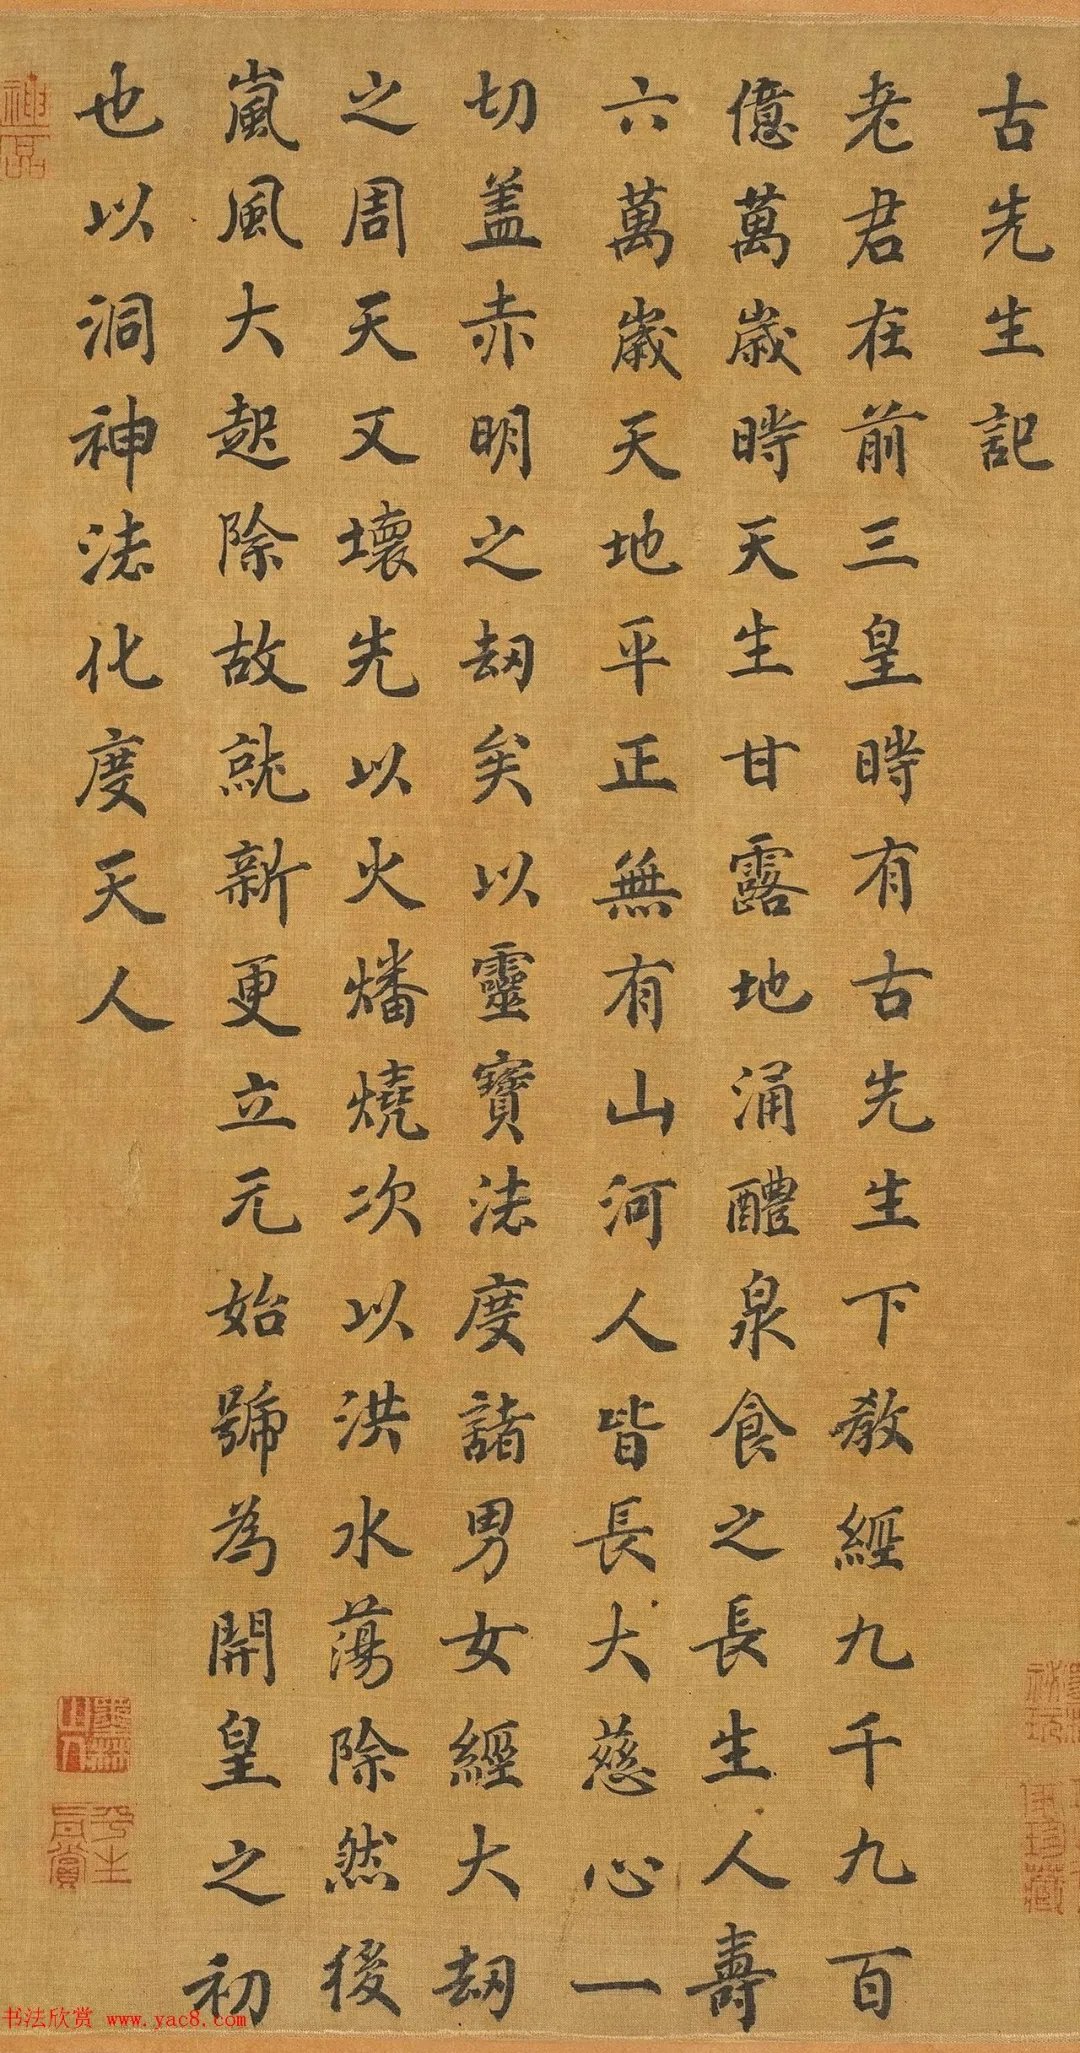 古先生記
老君在前三皇時有古先生下教經九千九百
億萬歲時天生甘露地涌醴泉食之長生人壽
六萬歲天地平正無有山河人皆長大慈心一
切蓋赤明之劫矣以靈寶法度諸男女經大劫
之周天又壞先以火燔燒次以洪水蕩除然後
嵐風大起除故就新更立元始號為開皇之初
也以洞神法化度天人
书法欣赏 www.yac8.com